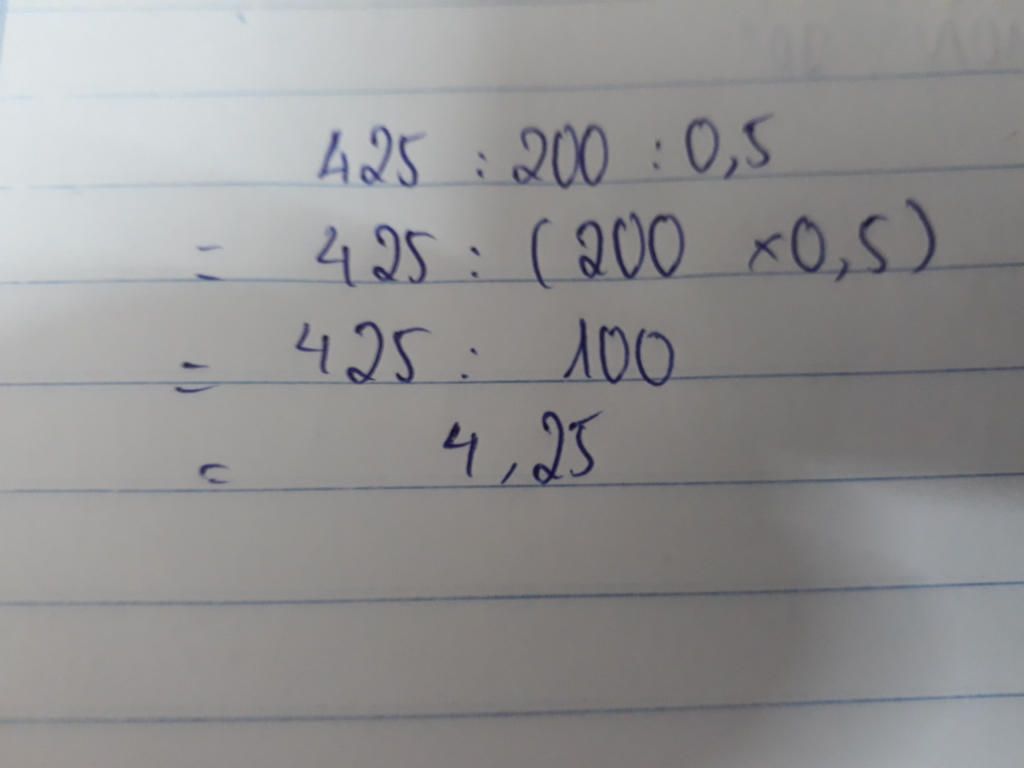 425 : 200 : 0,5
= 425 : (200 × 0,5)
= 425 : 100
= 4,25